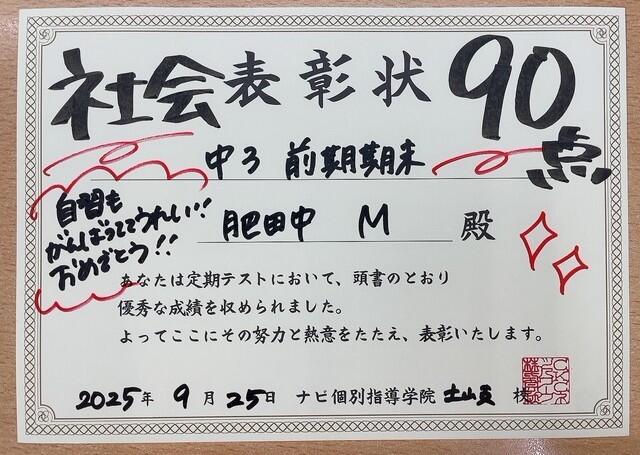 社会表彰状 90点
中3 前期期末
自習も
がんばっててうれしい!!
おめでとう!!
肥田中 M 殿
あなたは定期テストにおいて、頭書のとおり
優秀な成績を収められました。
よってここにその努力と熱意をたたえ、表彰いたします。
2025年 9月25日 ナビ個別指導学院 土山 校